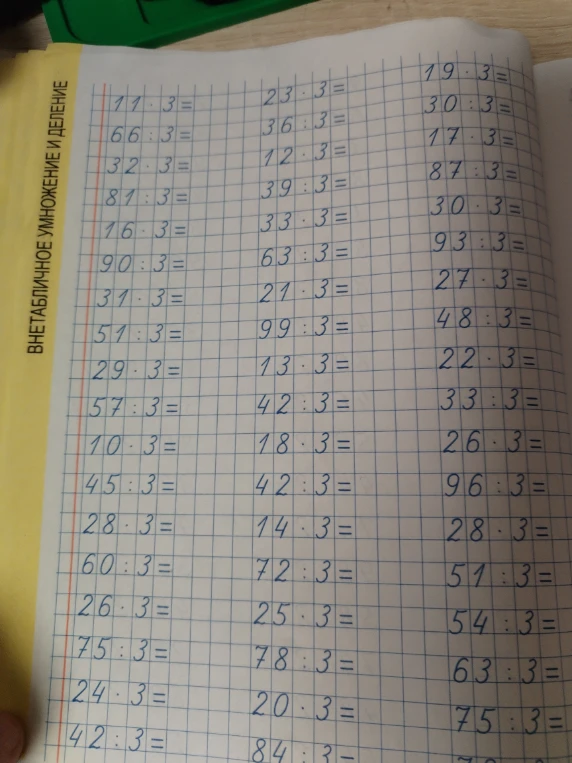 ВНЕТАБЛИЧНОЕ УМНОЖЕНИЕ И ДЕЛЕНИЕ
11 · 3 =
66 : 3 =
32 · 3 =
81 : 3 =
16 · 3 =
90 : 3 =
31 · 3 =
51 : 3 =
29 · 3 =
57 : 3 =
10 · 3 =
45 : 3 =
28 · 3 =
60 : 3 =
26 · 3 =
75 : 3 =
24 · 3 =
42 : 3 =
23 · 3 =
36 : 3 =
12 · 3 =
39 : 3 =
33 · 3 =
63 : 3 =
21 · 3 =
99 : 3 =
13 · 3 =
42 : 3 =
18 · 3 =
42 : 3 =
14 · 3 =
72 : 3 =
25 · 3 =
78 : 3 =
20 · 3 =
84 : 3 =
19 · 3 =
30 : 3 =
17 · 3 =
87 : 3 =
30 · 3 =
93 : 3 =
27 · 3 =
48 : 3 =
22 · 3 =
33 : 3 =
26 · 3 =
96 : 3 =
28 · 3 =
51 : 3 =
54 : 3 =
63 : 3 =
75 : 3 =